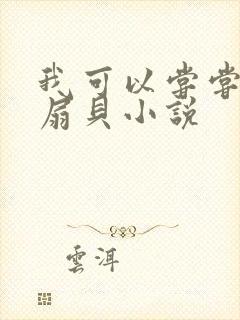 我可以嘗嘗
扇貝小說
雲洱